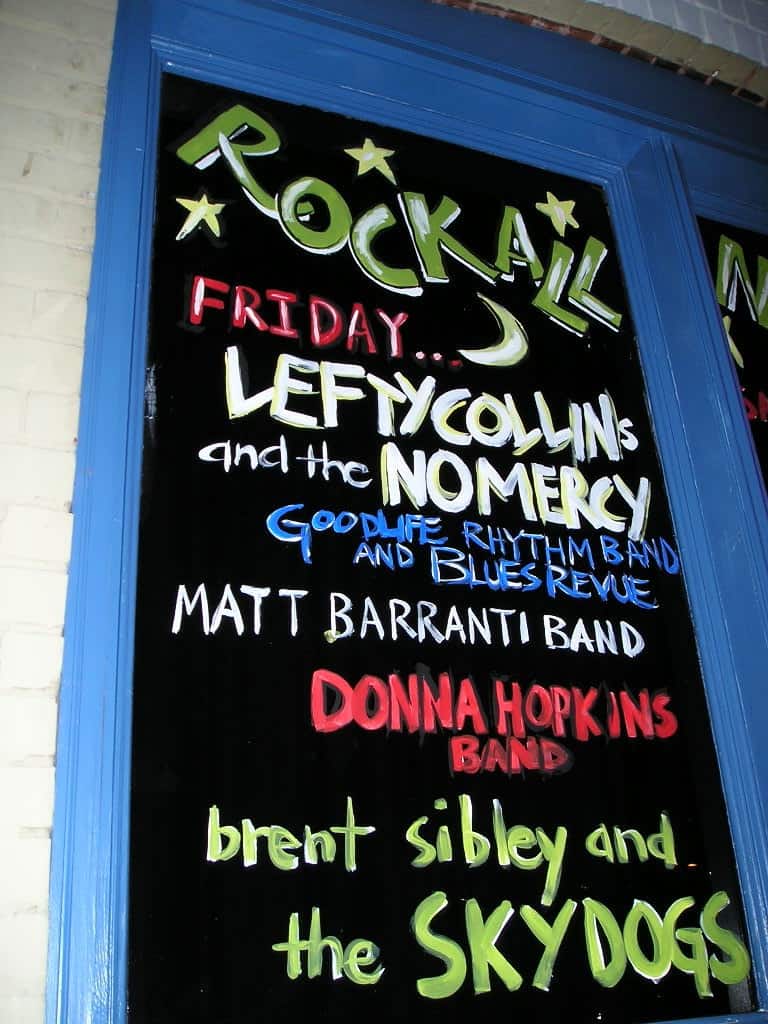 ROCKALL
FRIDAY...
LEFTY COLLINS
and the NO MERCY
GOODLIFE RHYTHM BAND
AND BLUES REVUE
MATT BARRANTI BAND
DONNA HOPKINS
BAND
brent sibley and
the SKYDOGS
N